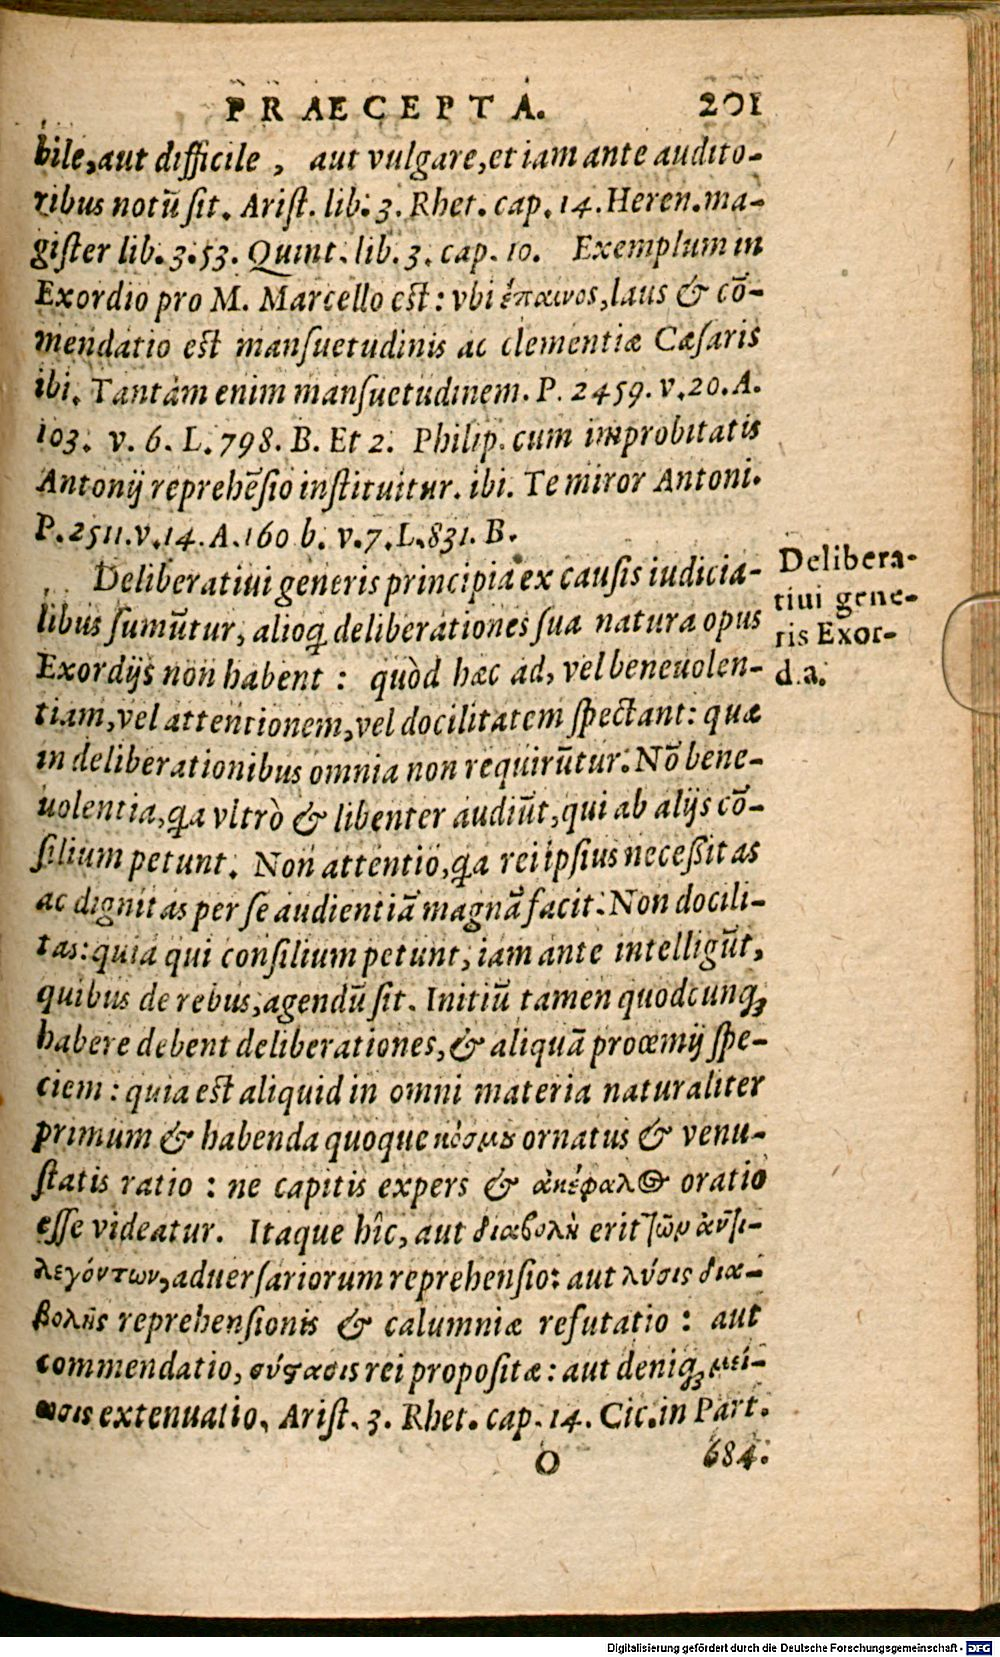 PRAECEPTA. 201
bile, aut difficile , aut vulgare, et iam ante audito-
ribus notū ſit. Ariſt. lib. 3. Rhet. cap. 14. Heren. ma-
giſter lib. 3. 53. Quint. lib. 3. cap. 10. Exemplum in
Exordio pro M. Marcello est: vbi ἔπαινος, laus & cō-
mendatio est manſuetudinis ac clementiæ Cæſaris
ibi. Tantam enim manſuetudinem. P. 2459. v. 20. A.
103. v. 6. L. 798. B. Et 2. Philip. cum improbitatis
Antonij reprehēſio inſtituitur. ibi. Te miror Antoni.
P. 2511. v. 14. A. 160 b. v. 7. L. 831. B.
Deliberatiui generis principia ex cauſis iudicia-
libus ſumūtur, alioq; deliberationes ſua natura opus
Exordijs non habent : quòd hæc ad, vel beneuolen-
tiam, vel attentionem, vel docilitatem ſpectant: quæ
in deliberationibus omnia non requirūtur. Nō bene-
uolentia, qa vltrò & libenter audiūt, qui ab alijs cō-
ſilium petunt. Non attentio, qa rei ipſius neceſſitas
ac dignitas per ſe audientiā magnā facit. Non docili-
tas: quia qui conſilium petunt, iam ante intelligūt,
quibus de rebus, agendū ſit. Initiū tamen quodcunq;
habere debent deliberationes, & aliquā proœmij ſpe-
ciem : quia est aliquid in omni materia naturaliter
primum & habenda quoque κόσμȣ ornatus & venu-
ſtatis ratio : ne capitis expers & ἀκέφαλος oratio
eſſe videatur. Itaque hîc, aut διαβολὴ erit τῶν ἀντι-
λεγόντων, aduerſariorum reprehenſio: aut λύσις δια-
βολῆς reprehenſionis & calumniæ refutatio : aut
commendatio, σύϛασις rei propoſitæ: aut deniq; μεί-
ωσις extenuatio. Ariſt. 3. Rhet. cap. 14. Cic. in Part.
O 684.
Delibera-
tiui gene-
ris Exor-
d.a.
Digitalisierung gefördert durch die Deutsche Forschungsgemeinschaft - DFG